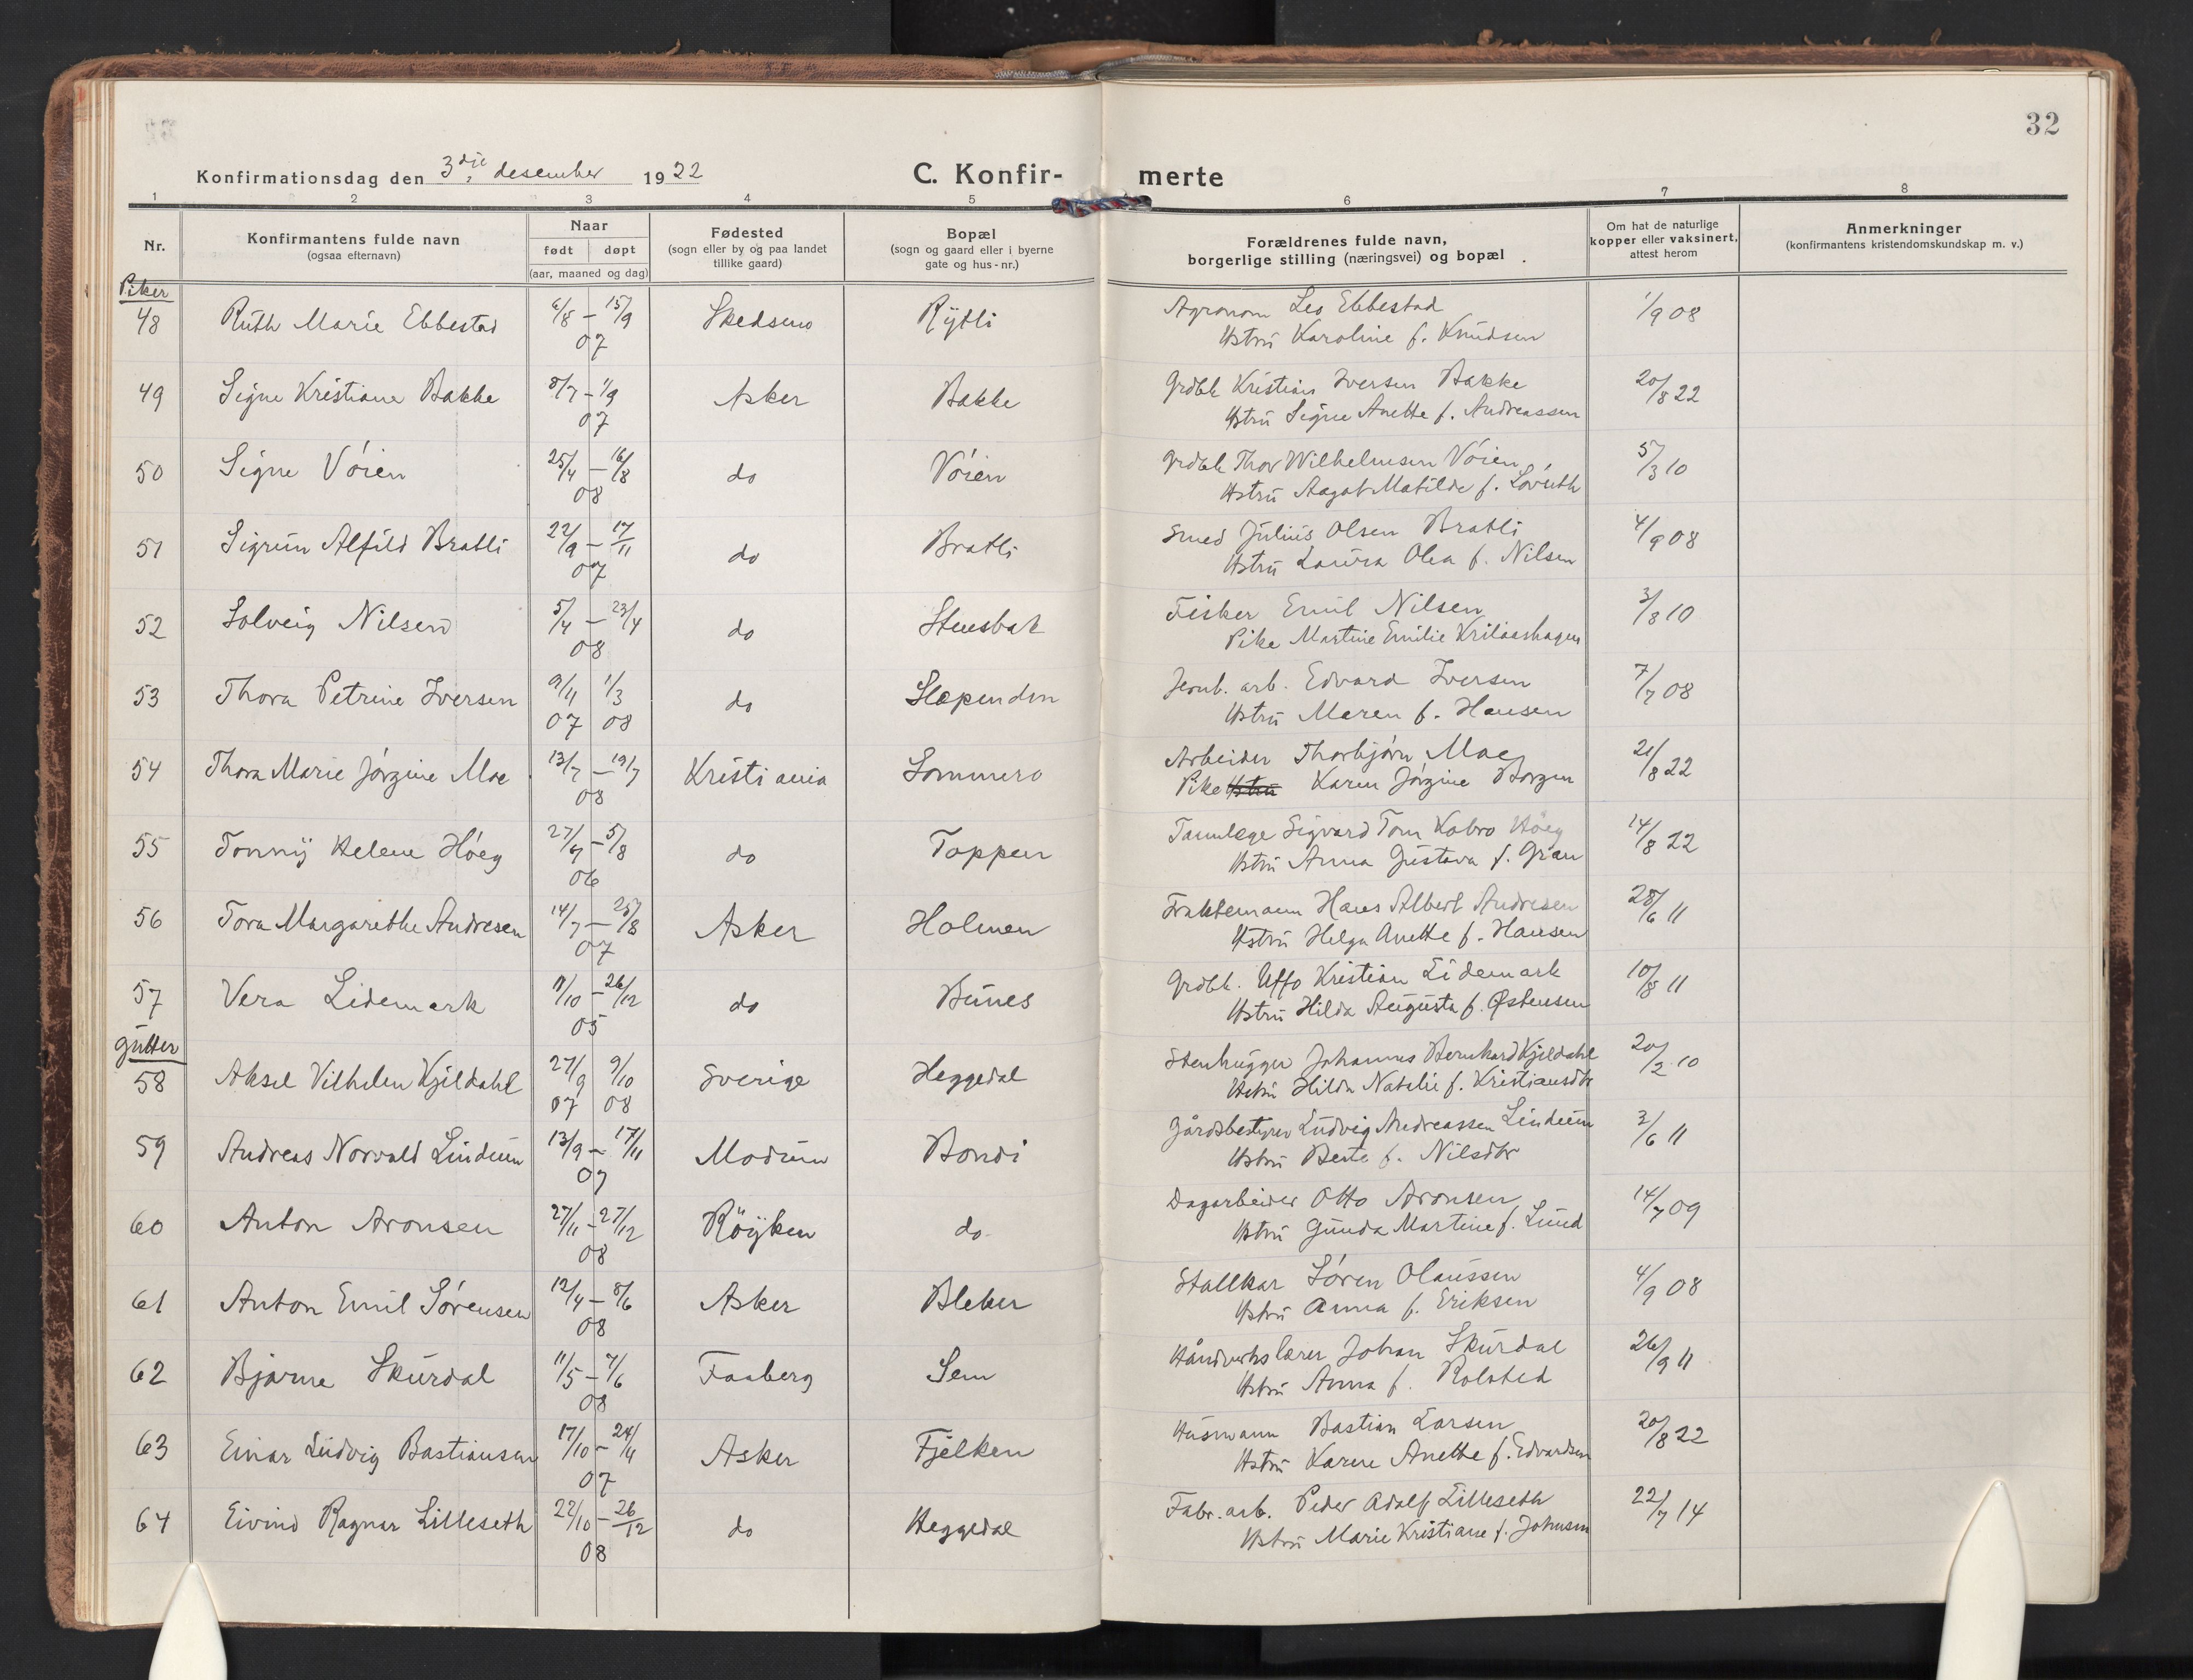 32
Konfirmationsdag den 3dje desember 1922
C. Konfir- merte
1 2 3 4 5 6 7 8
Nr.
Konfirmantens fulde navn
(ogsaa efternavn)
Naar
født døpt
(aar, maaned og dag)
Fødested
(sogn eller by og paa landet
tillike gaard)
Bopæl
(sogn og gaard eller i byerne
gate og hus-nr.)
Forældrenes fulde navn,
borgerlige stilling (næringsvei) og bopæl
Om hat de naturlige
kopper eller vaksinert,
attest herom
Anmerkninger
(konfirmantens kristendomskundskap m. v.)
Piker
48 Ruth Marie Ebbestad 6/8 – 15/9 Skedsmo Rytli Agronom Leo Ebbestad 1/9 08
07 Hstru Karoline f. Knudsen
49 Signe Kristiane Bakke 8/7 – 1/9 Asker Bakke Grdbk Kristian Iversen Bakke 20/8 22
07 Hstru Signe Anette f. Andreassen
50 Signe Vóien 25/4 – 16/8 do Vóien Grdbk Thor Wilhelmsen Vóien 5/3 10
08 Hstru Aagot Matilde f.
51 Sigrun Alfild Bratli 22/9 – 17/11 do Bratli Smed Julius Olsen Bratli 4/9 08
07 Hstru Laura Olea f. Nilsen
52 Solveig Nilsen 5/4 – 23/4 do Stensbak Fisker Emil Nilsen 3/8 10
08 Pike Martine Emilie
53 Thora Petrine Iversen 9/11 1/3 do Slependen Jernb. arb. Edvard Iversen 7/7 08
07 08 Hstru Maren f. Hansen
54 Thora Marie Jórgine Moe 13/7 – 19/7 Kristiania Sommero Arbeider Thorbjórn Moe 21/8 22
08 Pike Hstru Karen Jórgine Borgen
55 Tonny Helene Hóeg 27/4 – 5/8 do Toppen Tannlæge Sigvard Tom Kobro Hóeg 14/8 22
06 Hstru Anna Gustava f. Gran
56 Tora Margarethe Andresen 14/7 – 25/8 Asker Holmen Fraktemann Hans Albert Andresen 28/6 11
07 Hstru Helga Anette f. Hansen
57 Vera Lidemark 11/10 – 26/12 do Bunes Grdbk. Uffo Kristian Lidemark 10/8 11
05 Hstru Hilda Augusta f. Østensen
Gutter
58 Aksel Vilhelm Kjeldahl 27/9 9/10 Sverige Heggedal Stenhugger Johannes Bernhard Kjeldahl 20/2 10
07 08 Hstru Hilda Natalie f. Kristiansdtr
59 Andreas Norvald Lindum 13/9 – 17/11 Modum Bondi Gårdsbestyrer Ludvig Andreassen Lindum 3/6 11
07 Hstru Berte f. Nilsdtr
60 Anton Aronsen 27/11 – 27/12 Röyken do Dagarbeider Otto Aronsen 14/7 09
08 Hstru Gunda Martine f. Lund
61 Anton Emil Sórensen 12/4 – 8/6 Asker Bleker Stallkar Sóren Olaussen 4/9 08
08 Hstru Anna f. Eriksen
62 Bjarne Skurdal 11/5 – 7/6 Faaberg Sem Håndverkslærer Johan Skurdal 26/9 11
08 Hstru Anna f. Rolsted
63 Einar Ludvig Bastiansen 17/10 – 24/11 Asker Fjelken Husmann Bastian Larsen 20/8 22
07 Hstru Karen Anette f. Edvardsen
64 Eivind Ragnar Lilleseth 22/10 – 26/12 do Heggedal Fabr. arb. Peder Adolf Lilleseth 22/7 14
08 Hstru Marie Kristiane f. Johnsen